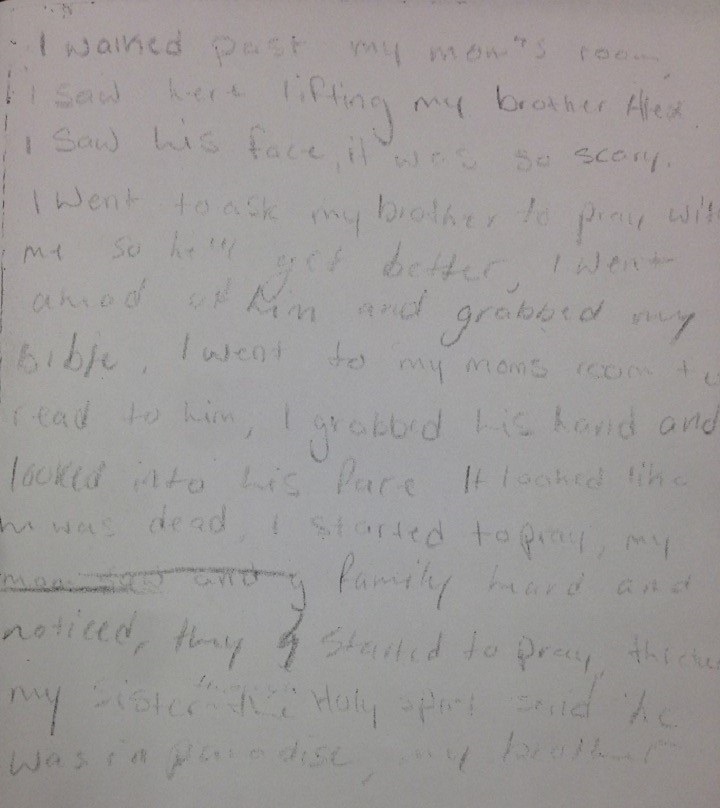 I walked past my mom's room,
I saw her lifting my brother Alex.
I saw his face, it was so scary.
I went to ask my brother to pray with
me so he'll get better, I went
ahead of him and grabbed my
Bible, I went to my moms room to
read to him, I grabbed his hand and
looked into his face It looked like
he was dead, I started to pray, my
mom saw and family heard and
noticed, they started to pray,
my sister "the Holy spirit said he
was in paradise, my brother